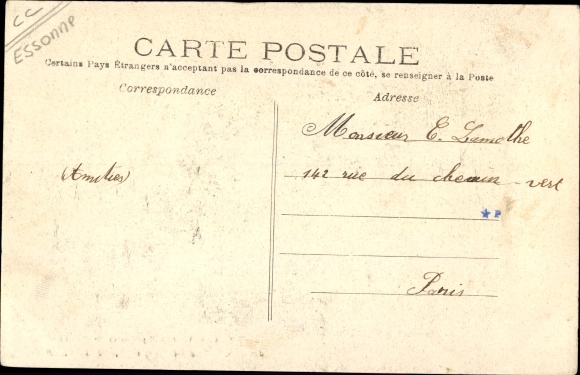 CC
Essonne
CARTE POSTALE
Certains Pays Étrangers n'acceptant pas la correspondance de ce côté, se renseigner à la Poste
Correspondance
Adresse
Monsieur E. Lamothe
Amitiés
142 rue du chemin-vert
★P
Paris